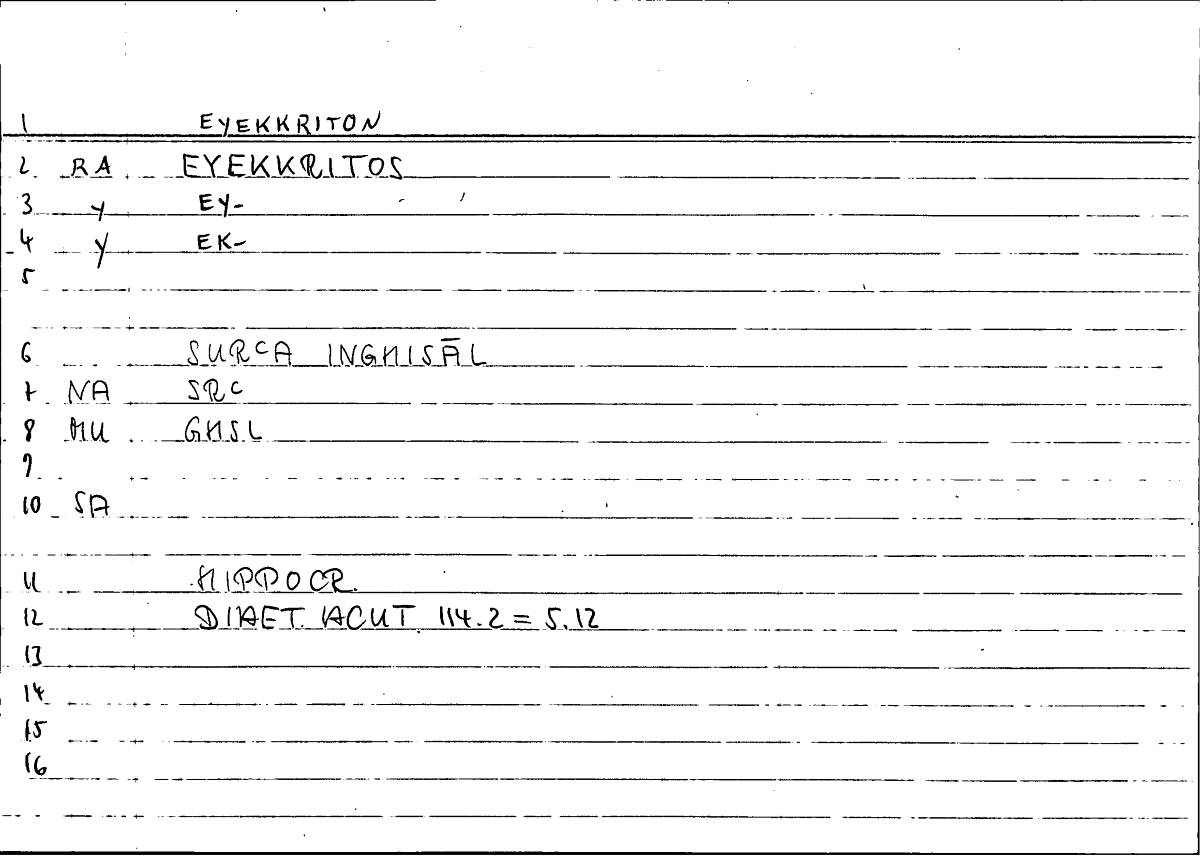 1 EYEKKRITON
2 RA EYEKKRITOS
3 Y EY-
4 Y EK-
5
6 SURCA INGHISĀL
7 NA SRC
8 MU GHSL
9
10 SA
11 HIPPOCR.
12 DIAET. ACUT. 114.2 = 5.12
13
14
15
16